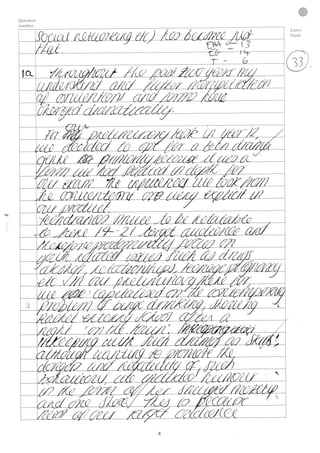 Question number
Leave blank
social networking etc) has become just
that.
EAA = 13
EG 14
T - 6
33
1a Throughout the past two years my
understand and further manipulation
of conventions and forms have
changed dramatically.
For our preliminary task in year 12,
we decided to opt for a teen drama
genre primarily because it was a
form we had studied in depth for
our exam. The influences we took from
the conventions are very explicit in
our product.
Teendramas strive to be relatable
to there 14-21 target audience and
therefore predominantly focus on
youth related issues such as drugs,
alcohol, relationships, teenage pregnancy
etc. In our preliminary piece for,
we capitalised on the contemporary
problem of binge drinking, showing
Rachel entering school after a
night 'on the town'.
In keeping with such dramas as skins,
although wanting to promote the
dangers and relatability of such
behaviour, we included humour
in the form of her smudged makeup
and one shoe. This is because
most of our target audience